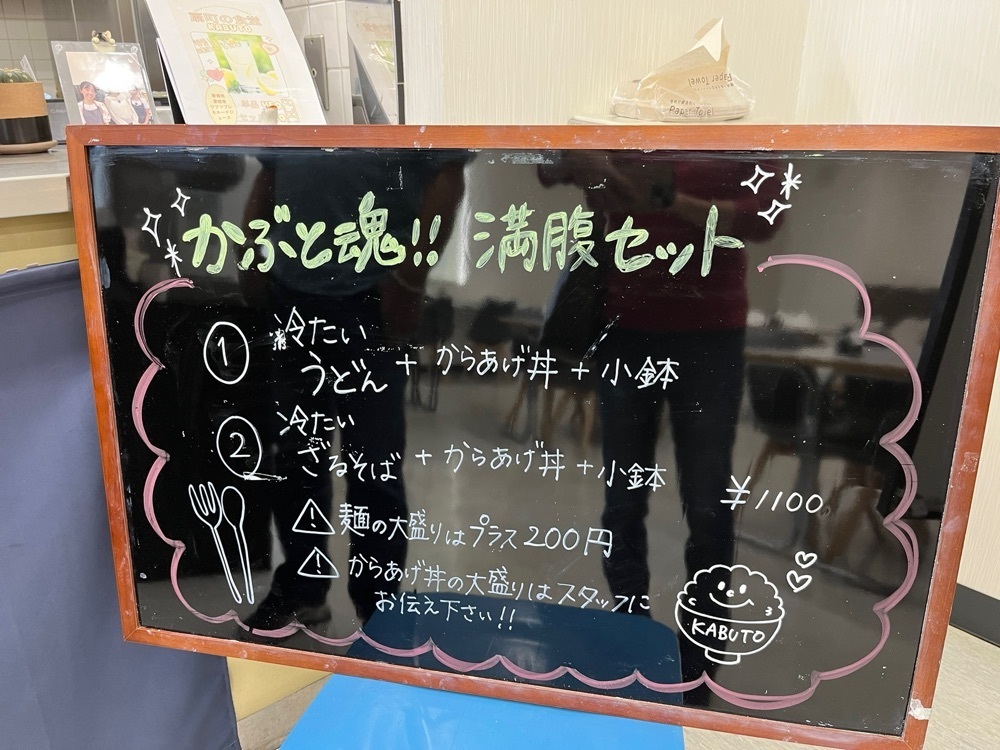 KABUTO
Paper Towel
Paper Towel
かぶと魂!! 満腹セット
① 冷たい
うどん + からあげ丼 + 小鉢
② 冷たい
ざるそば + からあげ丼 + 小鉢
¥1100
⚠麺の大盛りはプラス200円
⚠からあげ丼の大盛りはスタッフに
お伝え下さい!!
KABUTO